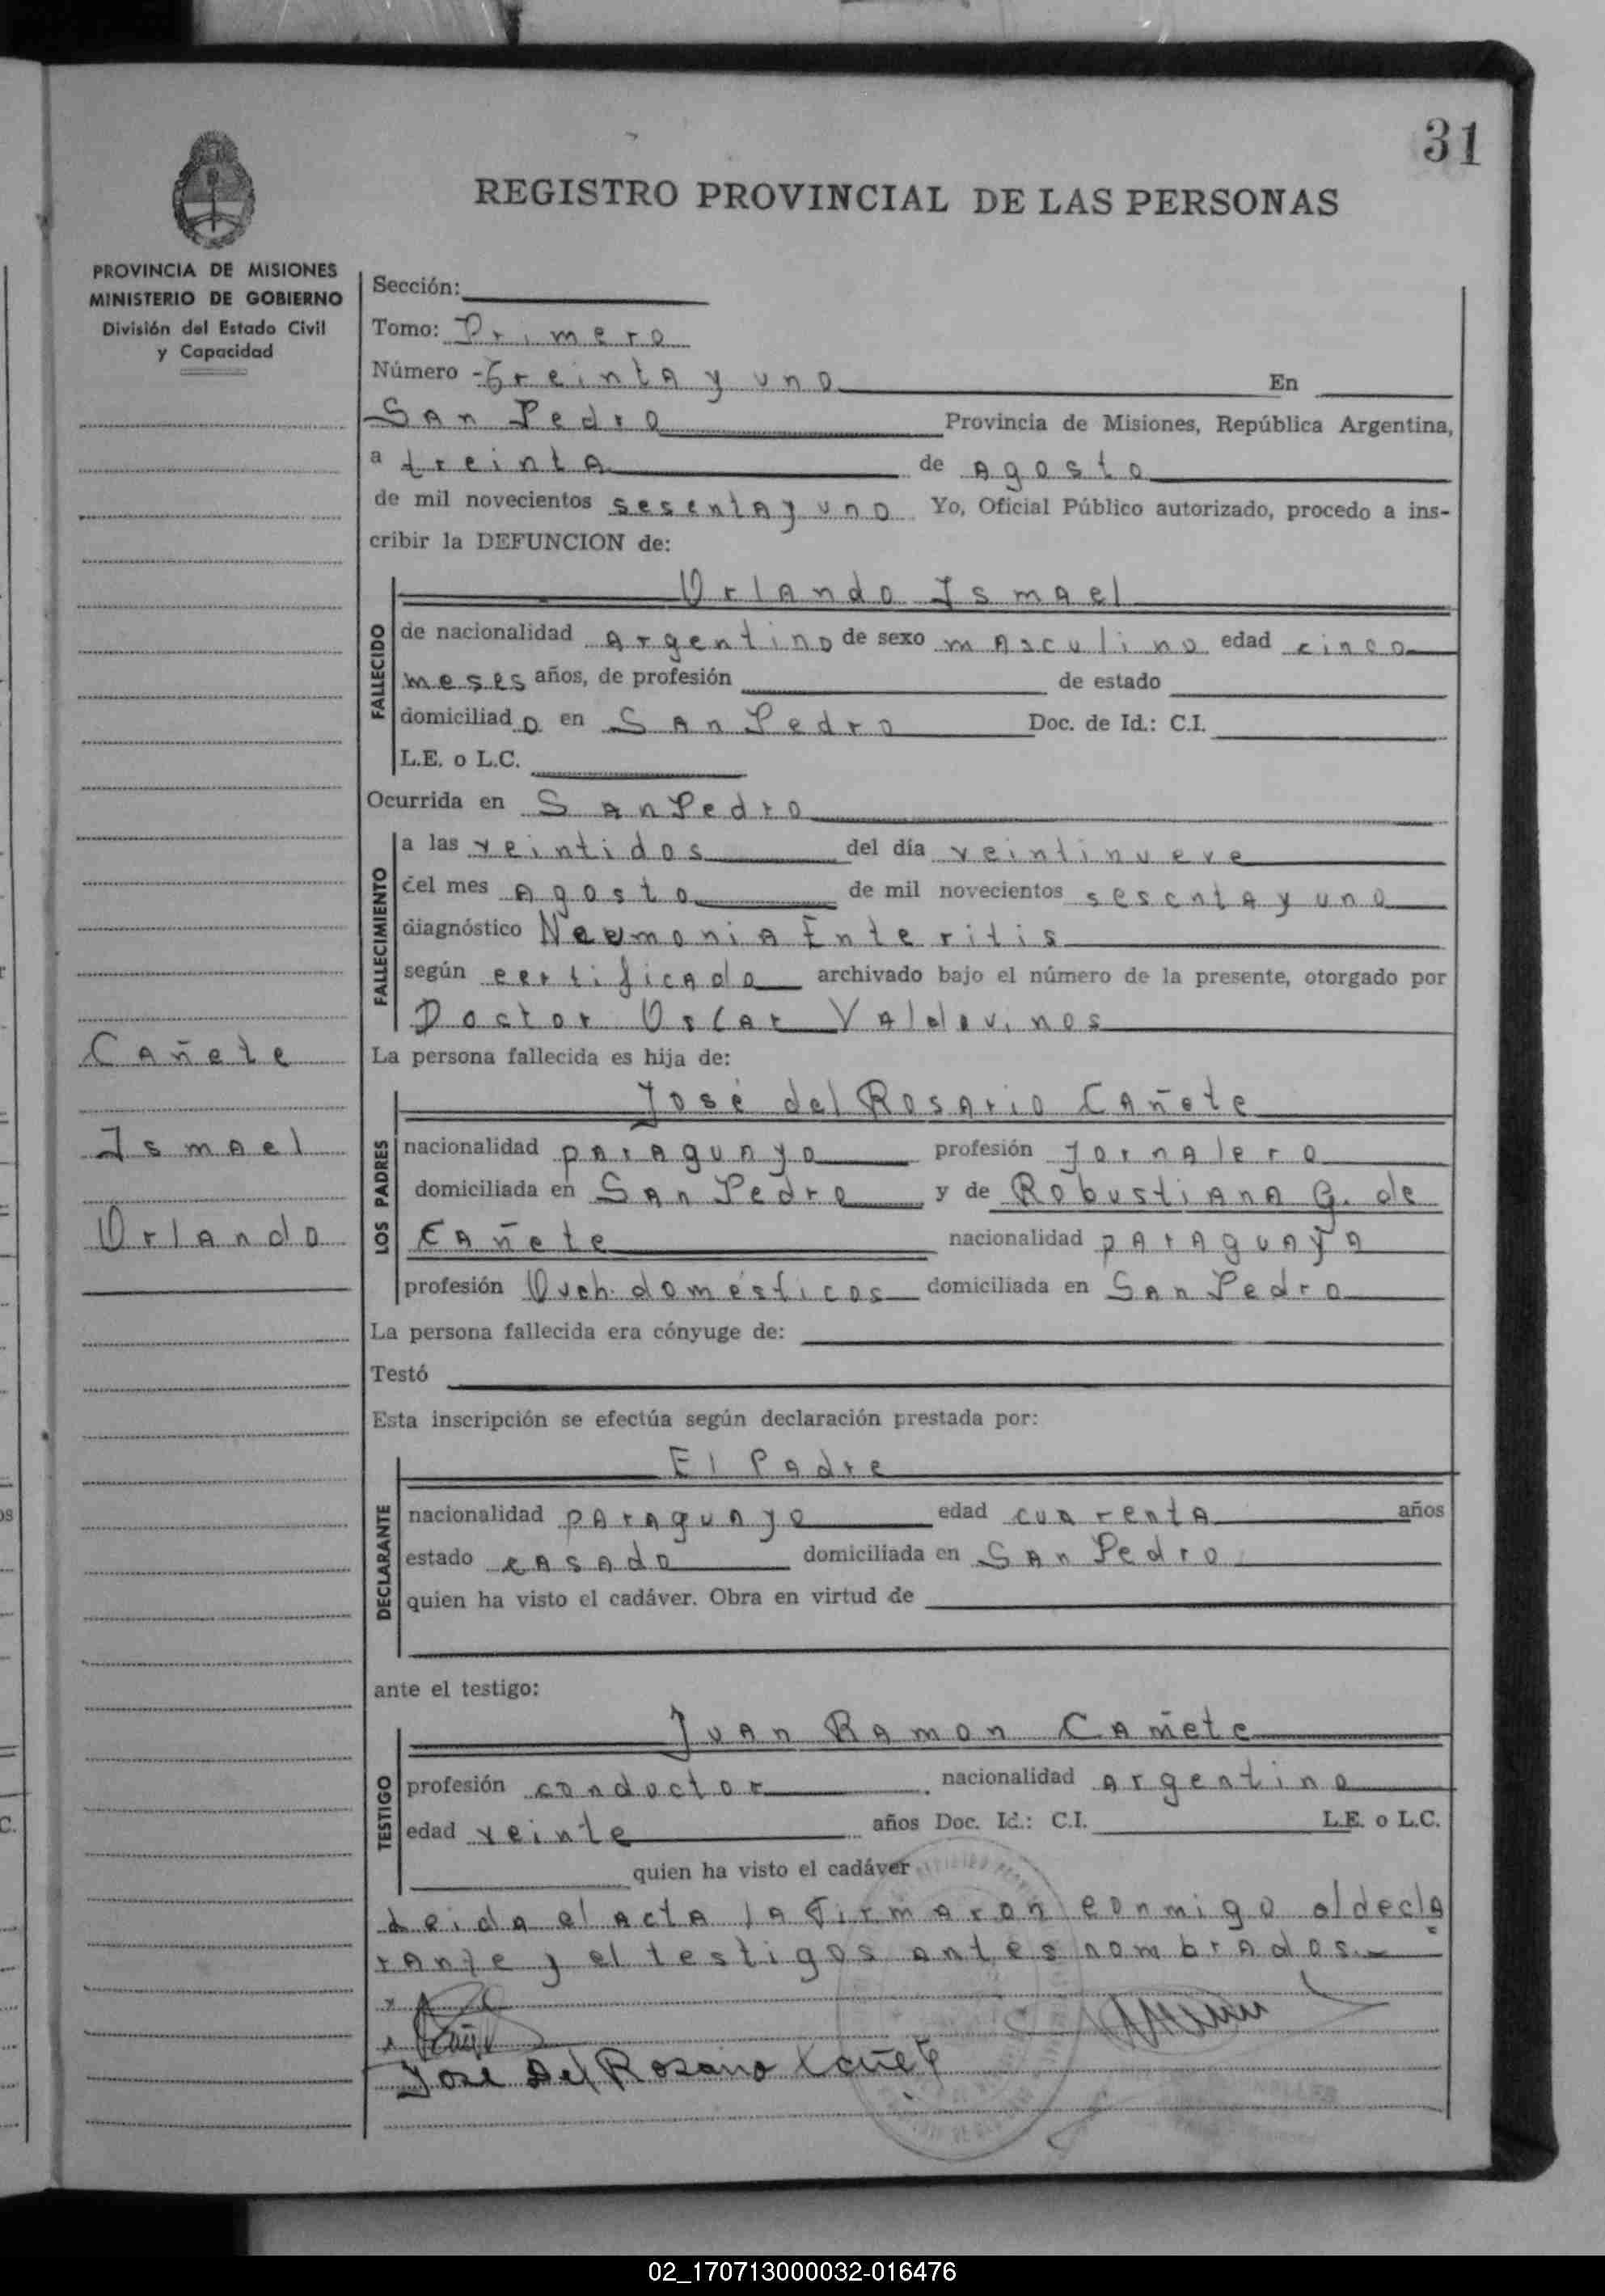 31
REGISTRO PROVINCIAL DE LAS PERSONAS
PROVINCIA DE MISIONES
MINISTERIO DE GOBIERNO
División del Estado Civil
y Capacidad
Sección:
Tomo: Primero
Número Treinta y uno En
San Pedro Provincia de Misiones, República Argentina,
a treinta de Agosto
de mil novecientos sesenta y uno Yo, Oficial Público autorizado, procedo a ins-
cribir la DEFUNCION de:
Orlando Ismael
FALLECIDO
de nacionalidad Argentino de sexo masculino edad cinco
meses años, de profesión de estado
domiciliado en San Pedro Doc. de Id.: C.I.
L.E. o L.C.
Ocurrida en San Pedro
FALLECIMIENTO
a las veintidos del día veintinueve
del mes Agosto de mil novecientos sesenta y uno
diagnóstico Neumonia Enteritis
según certificado archivado bajo el número de la presente, otorgado por
Doctor Oscar Valdovinos
Cañete
Ismael
Orlando
La persona fallecida es hija de:
José del Rosario Cañete
LOS PADRES
nacionalidad paraguayo profesión Jornalero
domiciliada en San Pedro y de Robustiana G. de
Cañete nacionalidad paraguaya
profesión Queh. domésticos domiciliada en San Pedro
La persona fallecida era cónyuge de:
Testó
Esta inscripción se efectúa según declaración prestada por:
El Padre
DECLARANTE
nacionalidad paraguayo edad cuarenta años
estado casado domiciliada en San Pedro
quien ha visto el cadáver. Obra en virtud de
ante el testigo:
Juan Ramon Cañete
TESTIGO
profesión conductor nacionalidad argentino
edad veinte años Doc. Id.: C.I. L.E. o L.C.
quien ha visto el cadáver
Leida el acta la Firmaron conmigo el decla
rante y el testigos antes nombrados.
Jose Del Rosario Cañete
02_170713000032-016476